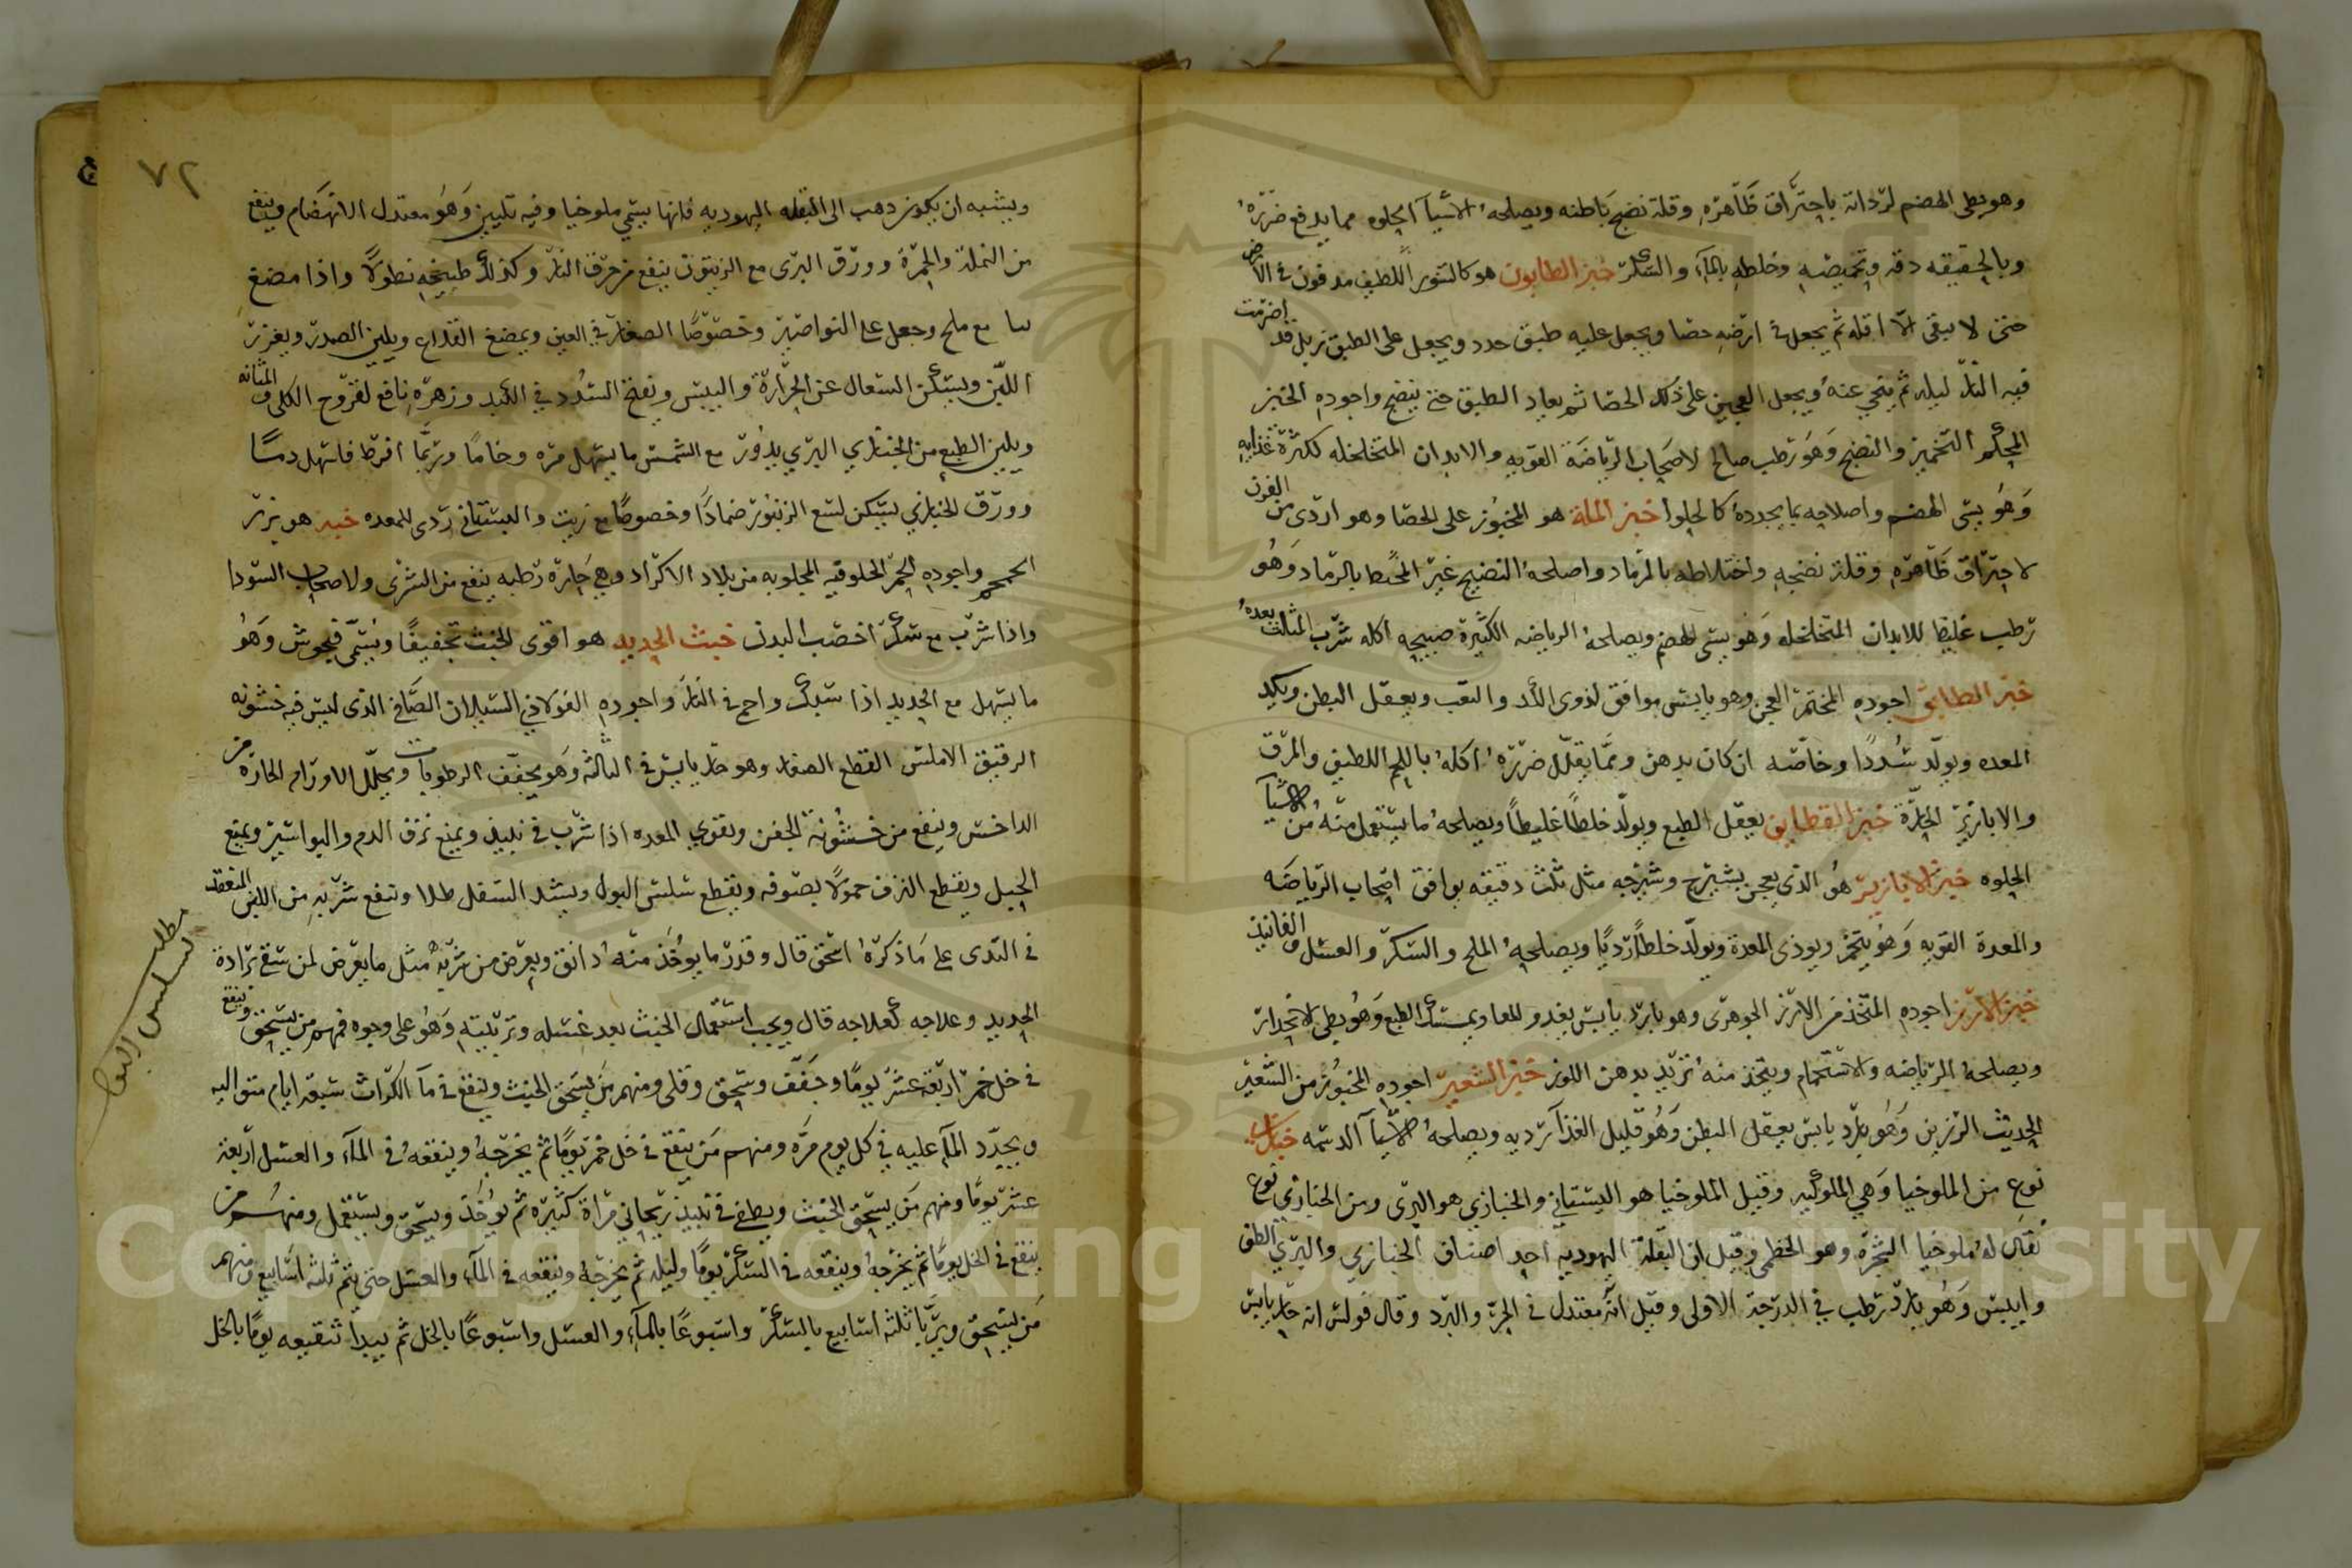 وهو بطى الهضم لرداته باحتراق ظاهره وقلة نضج باطنه ويصلحه الاشيآ الحلوه مما يدفع ضرره
وبالحقيقه دقه وتحميصه وخلطه بالمآء والسكر خبز الطابون هو كالتنور اللطيف مدفون فى الارض
حتى لا يبقى الا اقله ثم يجعل فى ارضه حصا ويجعل عليه طبق حدد ويجعل على الطبق زبل قد اضرمت
فيه النار ليله ثم ينحي عنه ويجعل العجين على ذلك الحصا ثم يعاد الطبق حتى ينضج واجوده الخبز
المحكم التخمير والنضج وهو رطب صالح لاصحاب الرياضة القويه والابدان المتخلخله لكثرة غذايه
وهو بسى الهضم واصلاحه بما يحدده كالحلوا خبز الملة هو المخبوز على الحصا وهو اردى من الفرن
لاحتراق ظاهره وقلة نضجه واختلاطه بالرماد واصلحه النضيج غير المختلط بالرماد وهو
رطب غليظا للابدان المتخلخله وهو بسى الهضم ويصلحه الرياضه الكثيرة صبيحه اكله شرب المثلث بعده
خبز الطابق اجوده المختمر العجن وهو يابس موافق لذوى الكد والتعب ويعقل البطن ويكد
المعده ويولد سددا وخاصه ان كان بدهن ومما يقلل ضرره اكله باللحم اللطيف والمرق
والابازير الحارة خبز القطايف يعقل الطبع ويولد خلطا غليظا ويصلحه ما يستعمل منه من الاشيآ
الحلوه خبز الابازير هو الذى يعجن بشيرج وشيرجه مثل ثلث دقيقه يوافق اصحاب الرياضه
والمعدة القويه وهو يتخم ويوذى المعدة ويولد خلطا رديا ويصلحه الملح والسكر والعسل والفانيذ
خبز الارز اجوده المتخذ من الارز الجوهرى وهو بارد يابس يغدو للمعا ويمسك الطبع وهو بطى الانحدار
ويصلحه الرياضه والاستحمام ويتخذ منه ثريد بدهن اللوز خبز الشعير اجوده المخبوز من الشعير
الحديث الرزين وهو بارد يابس يعقل البطن وهو قليل الغذآ رديه ويصلحه الاشيآ الدسمه خبازى
نوع من الملوخيا وهي الملوكيه وقيل الملوخيا هو البستاني والخبازي هو البرى ومن الخبازي نوع
يقال له ملوخيا الشجرة وهو الخطمى وقيل ان البقلة اليهوديه احد اصناف الخبازي والبري الطف
وايبس وهو بارد رطب في الدرجة الاولى وقيل انه معتدل في الحر والبرد وقال فولس انه حار يابس
٧٢
ويشبه ان يكون ذهب الى البقله اليهوديه فانها يسمي ملوخيا وفيه تليين وهو معتدل الانهضام وينفع
من النملة والحمرة وورق البرى مع الزيتون ينفع من حرق النار وكذلك طبيخه نطولا واذا مضغ
مع ملح وجعل على النواصير وخصوصا الصغار في العين وبمضغ القلاع ويلين الصدر ويغزر
اللبن ويسكن السعال عن الحرارة واليبس ونفتح السدد في الكبد وزهره نافع لقروح الكلى والمثانه
ويلين الطبع من الخبازي البري بذور مع الشمس ما يسهل مره وخاما وربما افرط فاسهل دما
وورق الخبازي يسكن لسع الزنبور ضمادا وخصوصا مع زيت والبستانى ردى للمعده خبه هو بزر
الحمحم واجوده الحمر الخلوقيه المجلوبه من بلاد الاكراد وهى حارة رطبه ينفع من الشرى ولاصحاب السودا
واذا شرب مع سكر اخصب البدن خبث الحديد هو اقوى الخبث تجفيفا ويسمى فيجوش وهو
ما يسهل مع الحديد اذا سبك واحمى فى النار واجوده الفولاذي السيلان الصافي الذى ليس فيه خشونه
الرقيق الاملس القطع الصغار وهو حار يابس في الثالثه وهو يجفف الرطوبات ويحلل الاورام الحارة من
الداخس وينفع من خشونة الجفن ويقوي المعده اذا شرب في نبيذ ويمنع نزف الدم والبواسير ويمنع
الحبل ويقطع النزف حمولا بصوفه ويقطع سلس البول ويشد السفل طلا وينفع شربه من اللبن المنعقد
في الثدى على ما ذكره اسحق قال وقدر ما يوخذ منه دانق ويعرض من شربه مثل ما يعرض لمن سقى برادة
الحديد وعلاجه كعلاجه قال ويجب استعمال الخبث بعد غسله وتربيته وهو على وجوه فمنهم من يسحق وينقع
في خل خمر اربعة عشر يوما وجفف وسحق وقلى ومنهم من يسحق الخبث وينقع في مآ الكراث سبعة ايام متواليه
ويجدد المآء عليه في كل يوم مره ومنهم من ينقع في خل خمر يوما ثم يخرجه وينقعه فى المآء والعسل اربعة
عشر يوما ومنهم من يسحق الخبث ويطفى في نبيذ ريحاني مراة كثيره ثم يوخذ ويسحق ويستعمل ومنهم من
ينقع في الخل يوما ثم يخرجه وينقعه في السكر يوما وليله ثم يخرجه وينقعه في المآء والعسل حتى يتم ثلثه اسابيع ومنهم
من يسحق ويربا ثلثه اسابيع بالسكر واسبوعا بالمآء والعسل واسبوعا بالخل ثم يبدا تنقيعه يوما بالخل
مطلب
لسلس البول
Copyright © King Saud University
1957